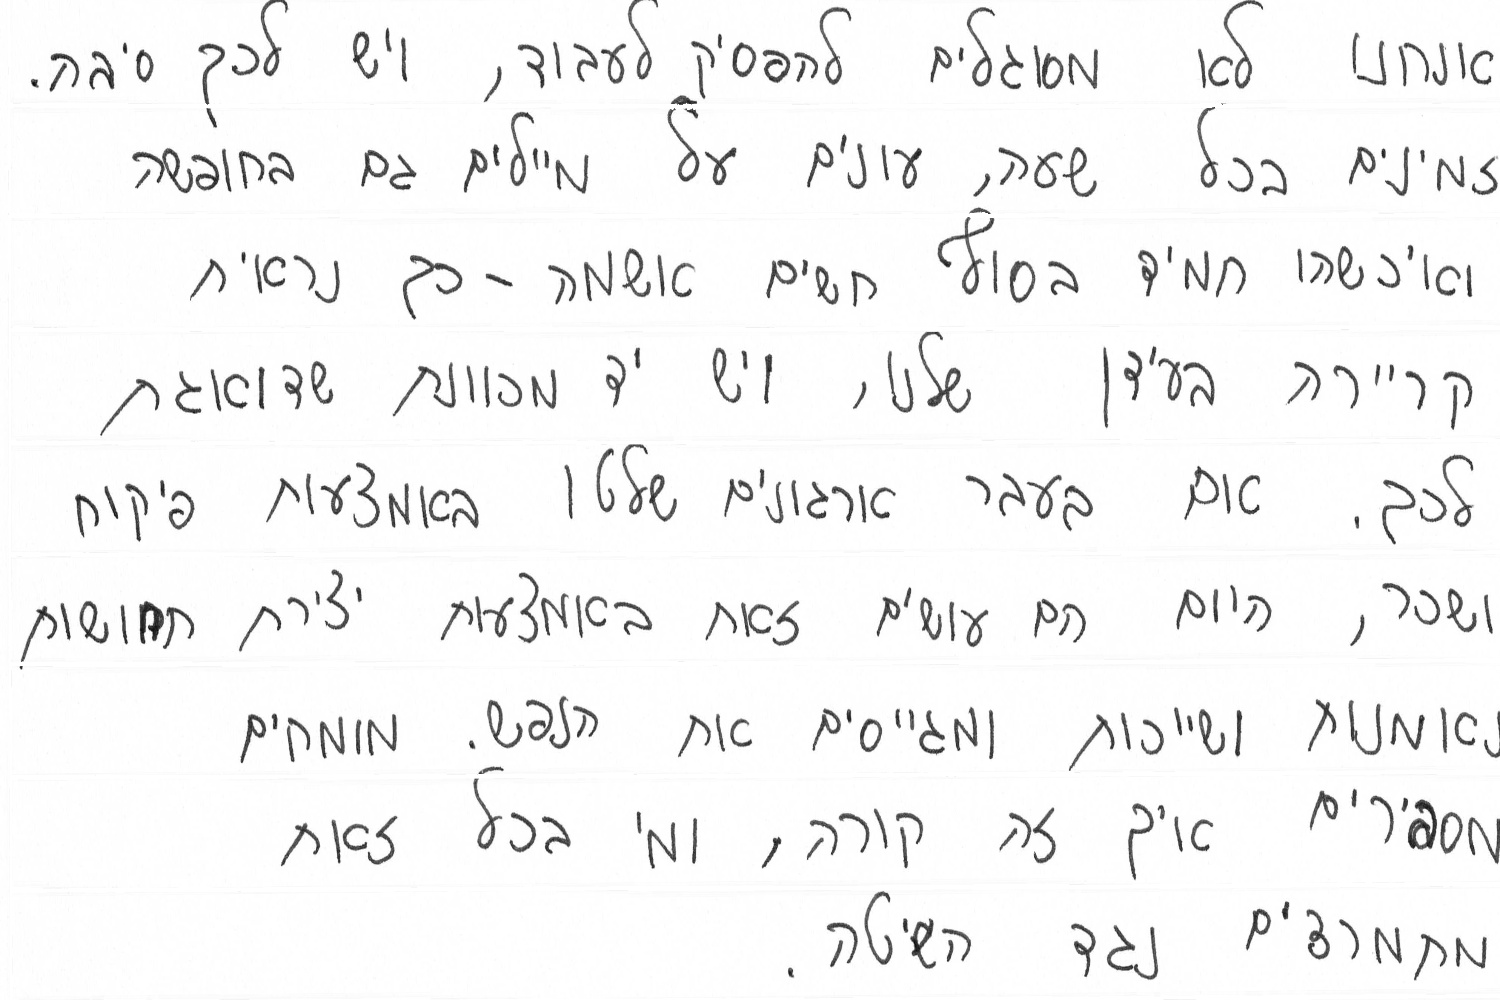 אנחנו לא מסוגלים להפסיק לעבוד, ויש לכך סיבה.
זמינים בכל שעה, עונים על מיילים גם בחופשה
ואיכשהו תמיד בסוף חשים אשמה - כך נראית
קריירה בעידן שלנו, ויש יד מכוונת שדואגת
לכך. אם בעבר ארגונים שלטו באמצעות פיקוח
ושכר, היום הם עושים זאת באמצעות יצירת תחושות
נאמנות ושייכות ומגייסים את הנפש. מומחים
מספרים איך זה קורה, ומי בכל זאת
מתמרדים נגד השיטה.